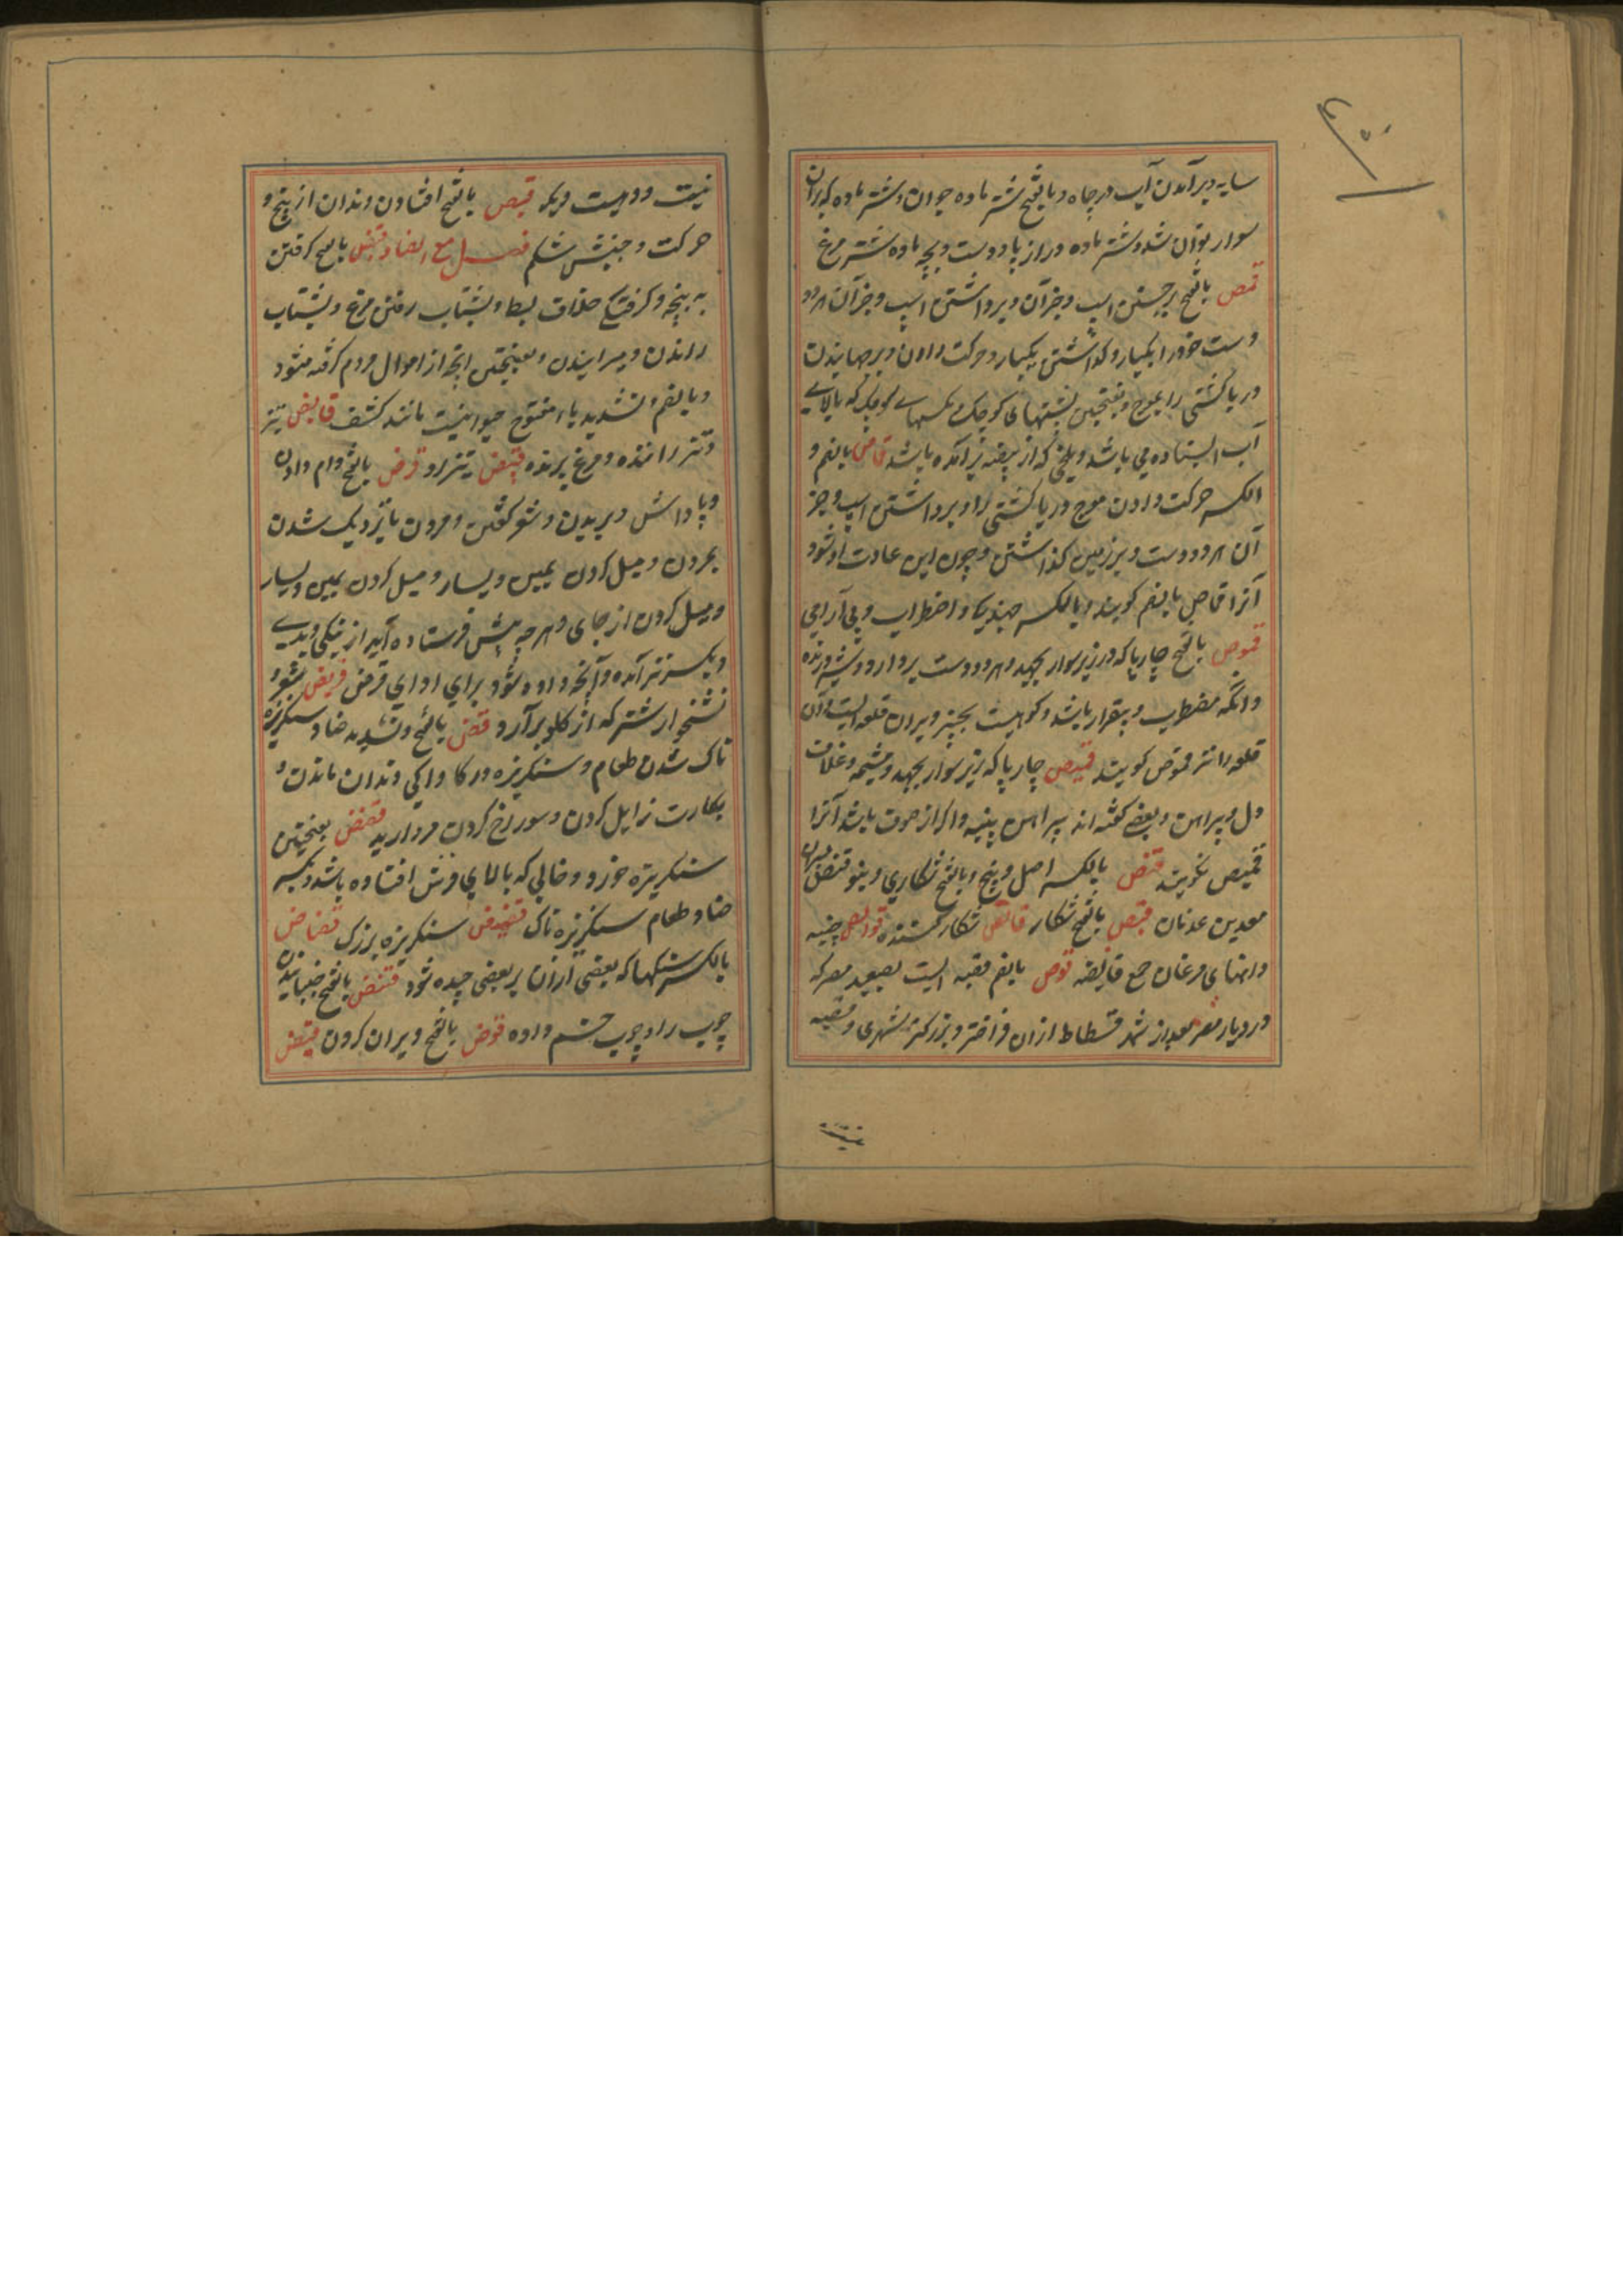 سایه و برآمدن آب در چاه و بالفتح شتر ماده جوان و شتر ماده که بران
سوار توان شد و شتر ماده دراز پا و دست و بچه ماده شتر مرغ
قمص بالفتح برجستن اسپ و جز آن و برداشتن اسپ و جز آن هر دو
دست خود را یکبار و گذاشتن یکبار و حرکت دادن و برجهانیدن
دریا کشتی را بموج و بفتحتین پشهای کوچک مگسهای کوچک که بالای
آب ایستاده می باشد و ملخ که از بیضه برآمده باشد قماص بالضم و
الکسر حرکت دادن موج دریا کشتی را و برداشتن اسپ و جز
آن هر دو دست و بر زمین گذاشتن و چون این عادت او شود
آنرا قماص بالضم گویند و بالکسر اضطراب و بی آرامی
قموص بالفتح چارپا که در زیر سوار بجهد و هر دو دست بردارد و شیر درنده
و آنکه مضطرب و بیقرار باشد و کوهیست بخیبر و بران قلعه ایست و آن
قلعه را نیز قموص گویند قمیص چارپا که زیر سوار بجهد و مشیمه و غلاف
دل و پیراهن و بعضی گفته اند پیراهن پنبه و اگر از صوف باشد آنرا
قمیص نگویند قنص بالکسر اصل و بیخ و بالفتح شکاری و بنو قنص پسران
معد بن عدنان قنیص بالفتح شکار قانص شکار کننده قوانص چینه
دانهای مرغان جمع قانصه قوص بالضم قصبه ایست بصعید مصر که
در دیار مصر بعد از شهر فسطاط ازان فراختر و بزرگتر شهری و قصبه
نیست و دهیست دیگر قیص بالفتح افتادن دندان از بیخ و
حرکت و جنبش شکم فصل مع الضاد قبض بالفتح گرفتن
به پنجه و گرفتگی خلاف بسط و بشتاب رفتن مرغ و بشتاب
راندن و میرانیدن و بفتحتین آنچه از اموال مردم گرفته میشود
و بالضم و تشدید باء مفتوح حیوانیست مانند کشف قابض تیز
و تیز راننده و مرغ پرنده قبیض تیزرو قرض بالفتح وام دادن
و پاداش و بریدن و شعر گفتن و مردن یا نزدیک شدن
بمردن و میل کردن یمین و یسار و میل کردن یمین و یسار
و میل کردن از جای و هرچه پیش فرستاده آید از نیکی و بدی
و بکسر نیز آمده و آنچه داده شود برای ادای قرض قریض شعر و
نشخوار شتر که از گلو برآرد قض بالفتح و تشدید ضاد سنگریزه
ناک شدن طعام و سنگریزه در کاواکی دندان ماندن و
بکارت زایل کردن و سوراخ کردن مروارید قضض بفتحتین
سنگریزه خورد و خاکی که بالای فرش افتاده باشد و بکسر
ضاد طعام سنگریزه ناک قضیض سنگریزه بزرگ قضاض
بالکسر سنگها که بعضی ازان بر بعضی چیده شود قعض بالفتح خمانیدن
چوب را و چوب خم داده قوض بالفتح ویران کردن قیض